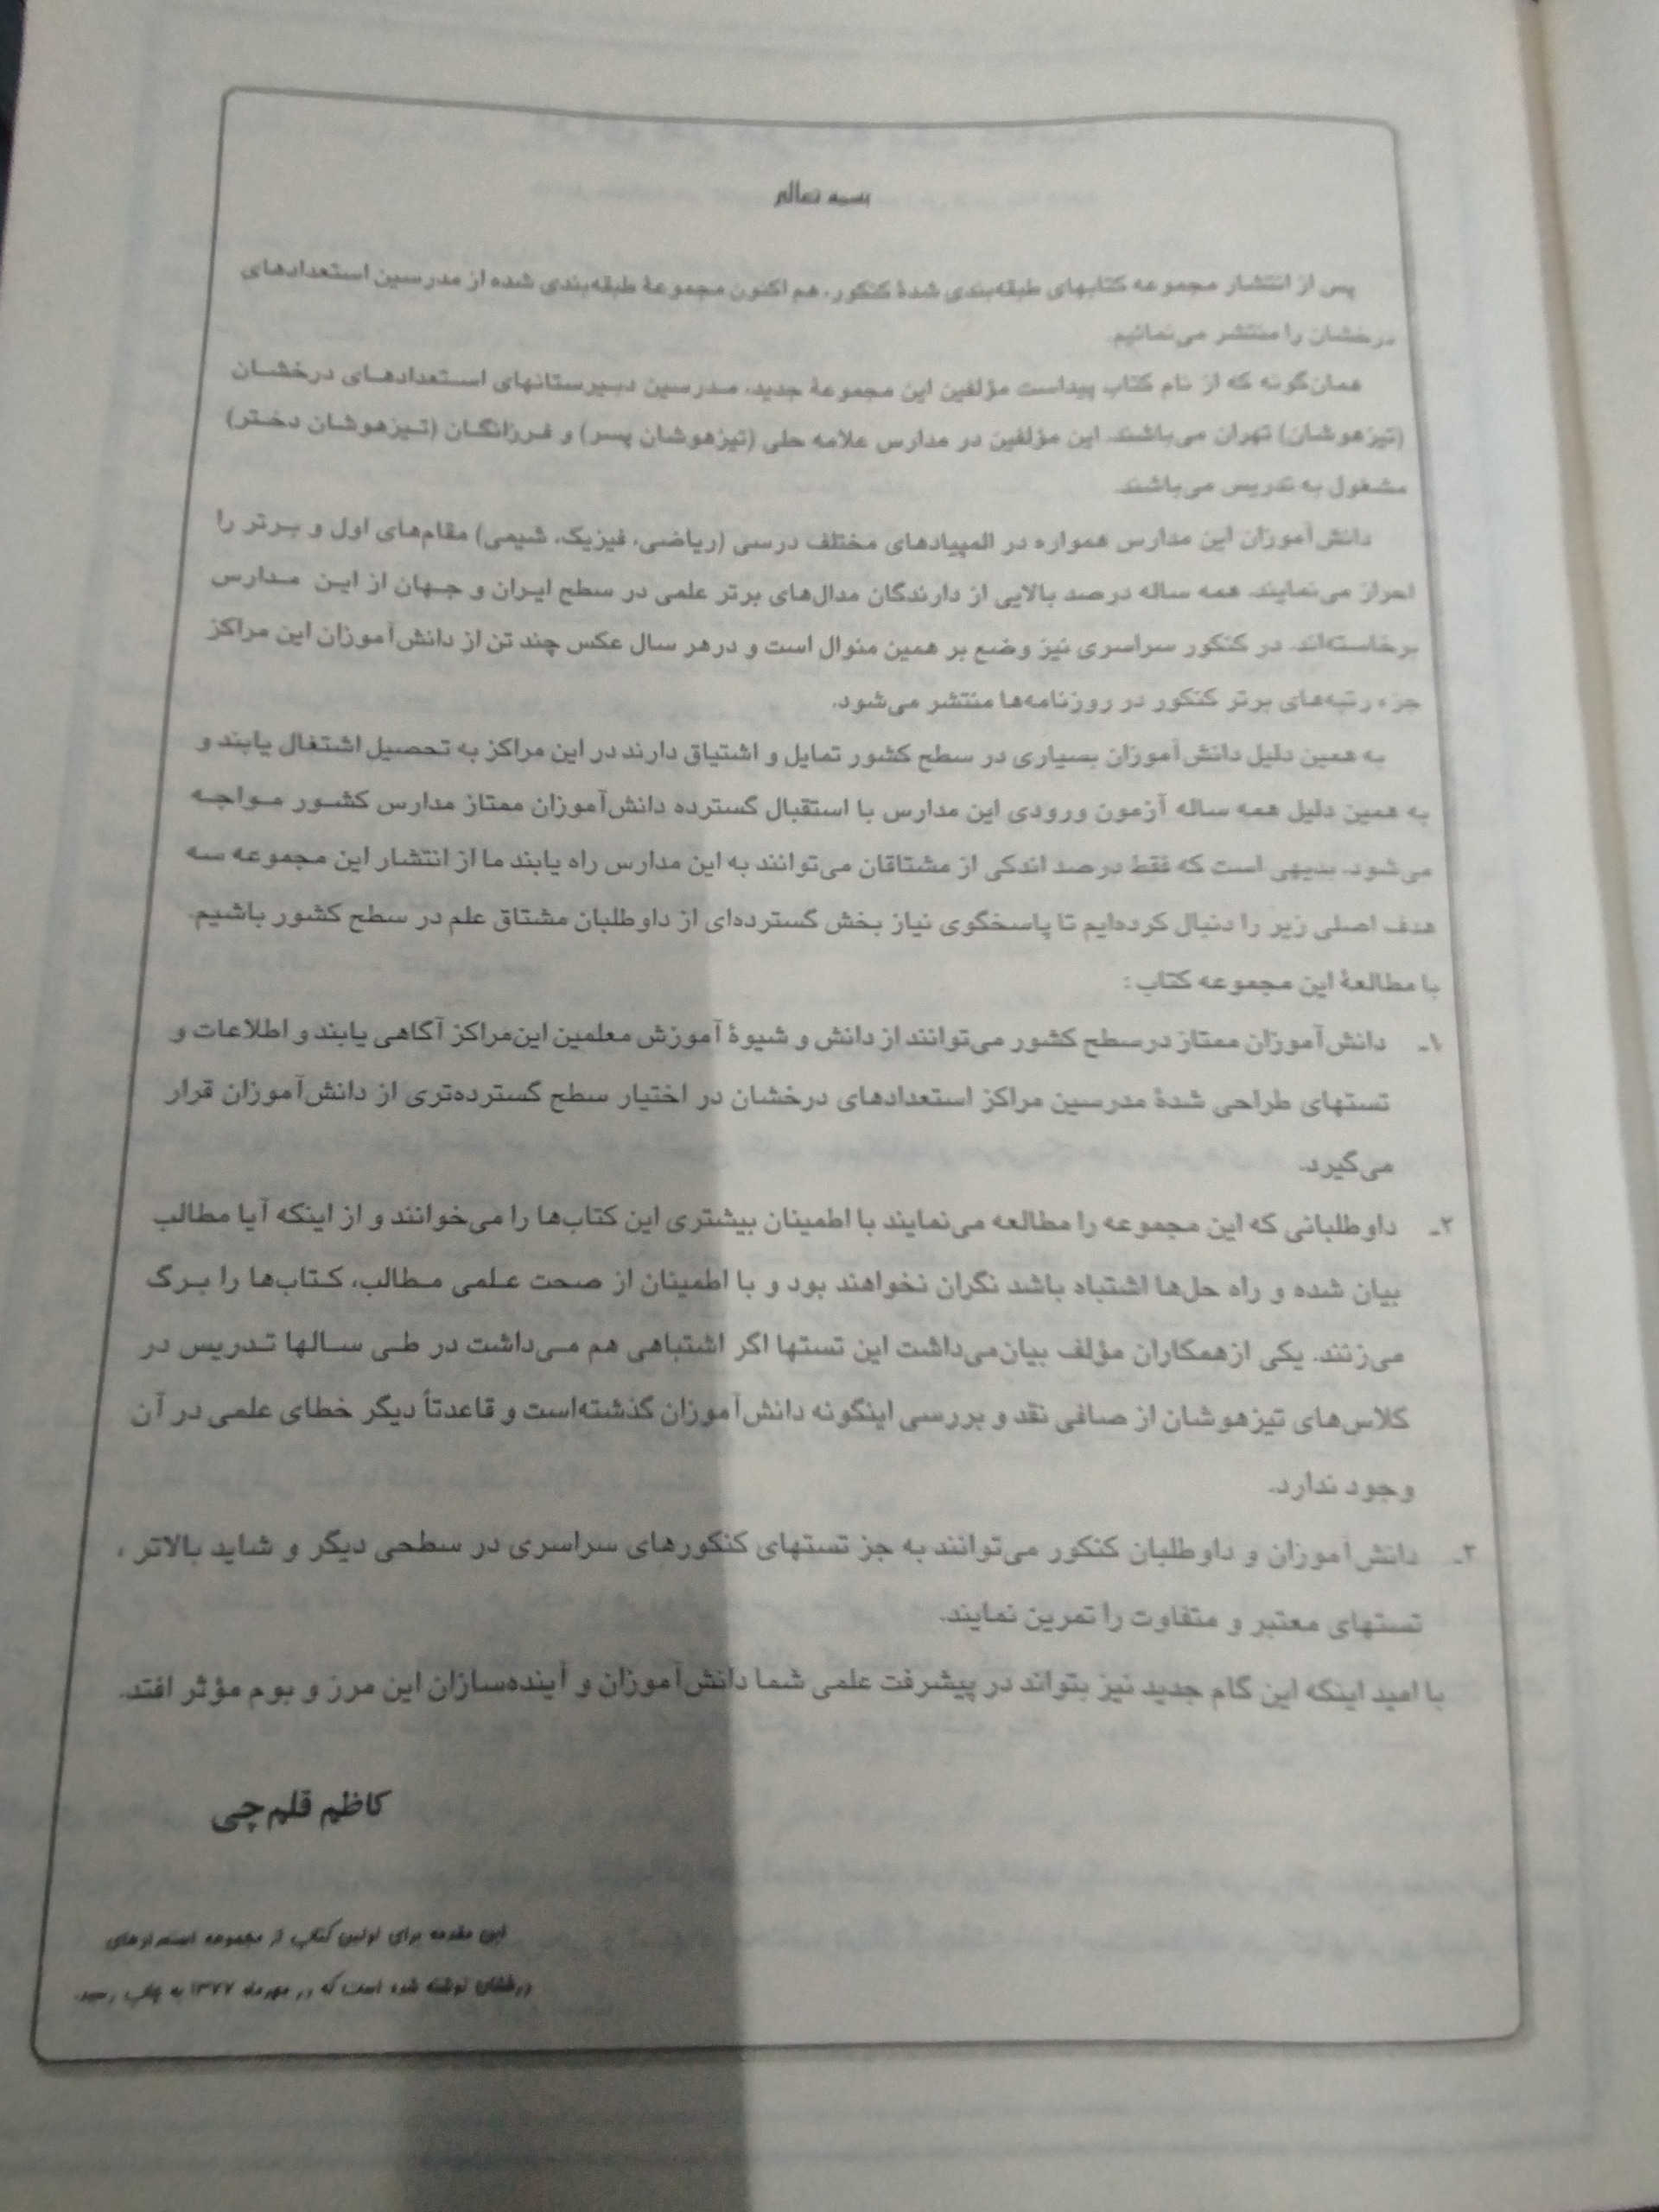 بسمه تعالی
پس از انتشار مجموعه کتابهای طبقه‌بندی شدهٔ کنکور، هم اکنون مجموعهٔ طبقه‌بندی شده از مدرسین استعدادهای
درخشان را منتشر می‌نمائیم.
همان‌گونه که از نام کتاب پیداست مؤلفین این مجموعهٔ جدید، مدرسین دبیرستانهای استعدادهای درخشان
(تیزهوشان) تهران می‌باشند. این مؤلفین در مدارس علامه حلی (تیزهوشان پسر) و فرزانگان (تیزهوشان دختر)
مشغول به تدریس می‌باشند.
دانش‌آموزان این مدارس همواره در المپیادهای مختلف درسی (ریاضی، فیزیک، شیمی) مقام‌های اول و برتر را
احراز می‌نمایند. همه ساله درصد بالایی از دارندگان مدال‌های برتر علمی در سطح ایران و جهان از این مدارس
برخاسته‌اند. در کنکور سراسری نیز وضع بر همین منوال است و درهر سال عکس چند تن از دانش‌آموزان این مراکز
جزء رتبه‌های برتر کنکور در روزنامه‌ها منتشر می‌شود.
به همین دلیل دانش‌آموزان بسیاری در سطح کشور تمایل و اشتیاق دارند در این مراکز به تحصیل اشتغال یابند و
به همین دلیل همه ساله آزمون ورودی این مدارس با استقبال گسترده دانش‌آموزان ممتاز مدارس کشور مواجه
می‌شود. بدیهی است که فقط درصد اندکی از مشتاقان می‌توانند به این مدارس راه یابند ما از انتشار این مجموعه سه
هدف اصلی زیر را دنبال کرده‌ایم تا پاسخگوی نیاز بخش گسترده‌ای از داوطلبان مشتاق علم در سطح کشور باشیم.
با مطالعهٔ این مجموعه کتاب :
۱ـ دانش‌آموزان ممتاز درسطح کشور می‌توانند از دانش و شیوهٔ آموزش معلمین این‌مراکز آگاهی یابند و اطلاعات و
تستهای طراحی شدهٔ مدرسین مراکز استعدادهای درخشان در اختیار سطح گسترده‌تری از دانش‌آموزان قرار
می‌گیرد.
۲ـ داوطلبانی که این مجموعه را مطالعه می‌نمایند با اطمینان بیشتری این کتاب‌ها را می‌خوانند و از اینکه آیا مطالب
بیان شده و راه حل‌ها اشتباه باشد نگران نخواهند بود و با اطمینان از صحت علمی مطالب، کتاب‌ها را برگ
می‌زنند. یکی ازهمکاران مؤلف بیان‌می‌داشت این تستها اگر اشتباهی هم می‌داشت در طی سالها تدریس در
کلاس‌های تیزهوشان از صافی نقد و بررسی اینگونه دانش‌آموزان گذشته‌است و قاعدتاً دیگر خطای علمی در آن
وجود ندارد.
۳ـ دانش‌آموزان و داوطلبان کنکور می‌توانند به جز تستهای کنکورهای سراسری در سطحی دیگر و شاید بالاتر ،
تستهای معتبر و متفاوت را تمرین نمایند.
با امید اینکه این گام جدید نیز بتواند در پیشرفت علمی شما دانش‌آموزان و آینده‌سازان این مرز و بوم مؤثر افتد.
کاظم قلم‌چی
این مقدمه برای اولین کتاب از مجموعه استعدادهای
درخشان نوشته شده است که در مهرماه ۱۳۷۷ به چاپ رسید.